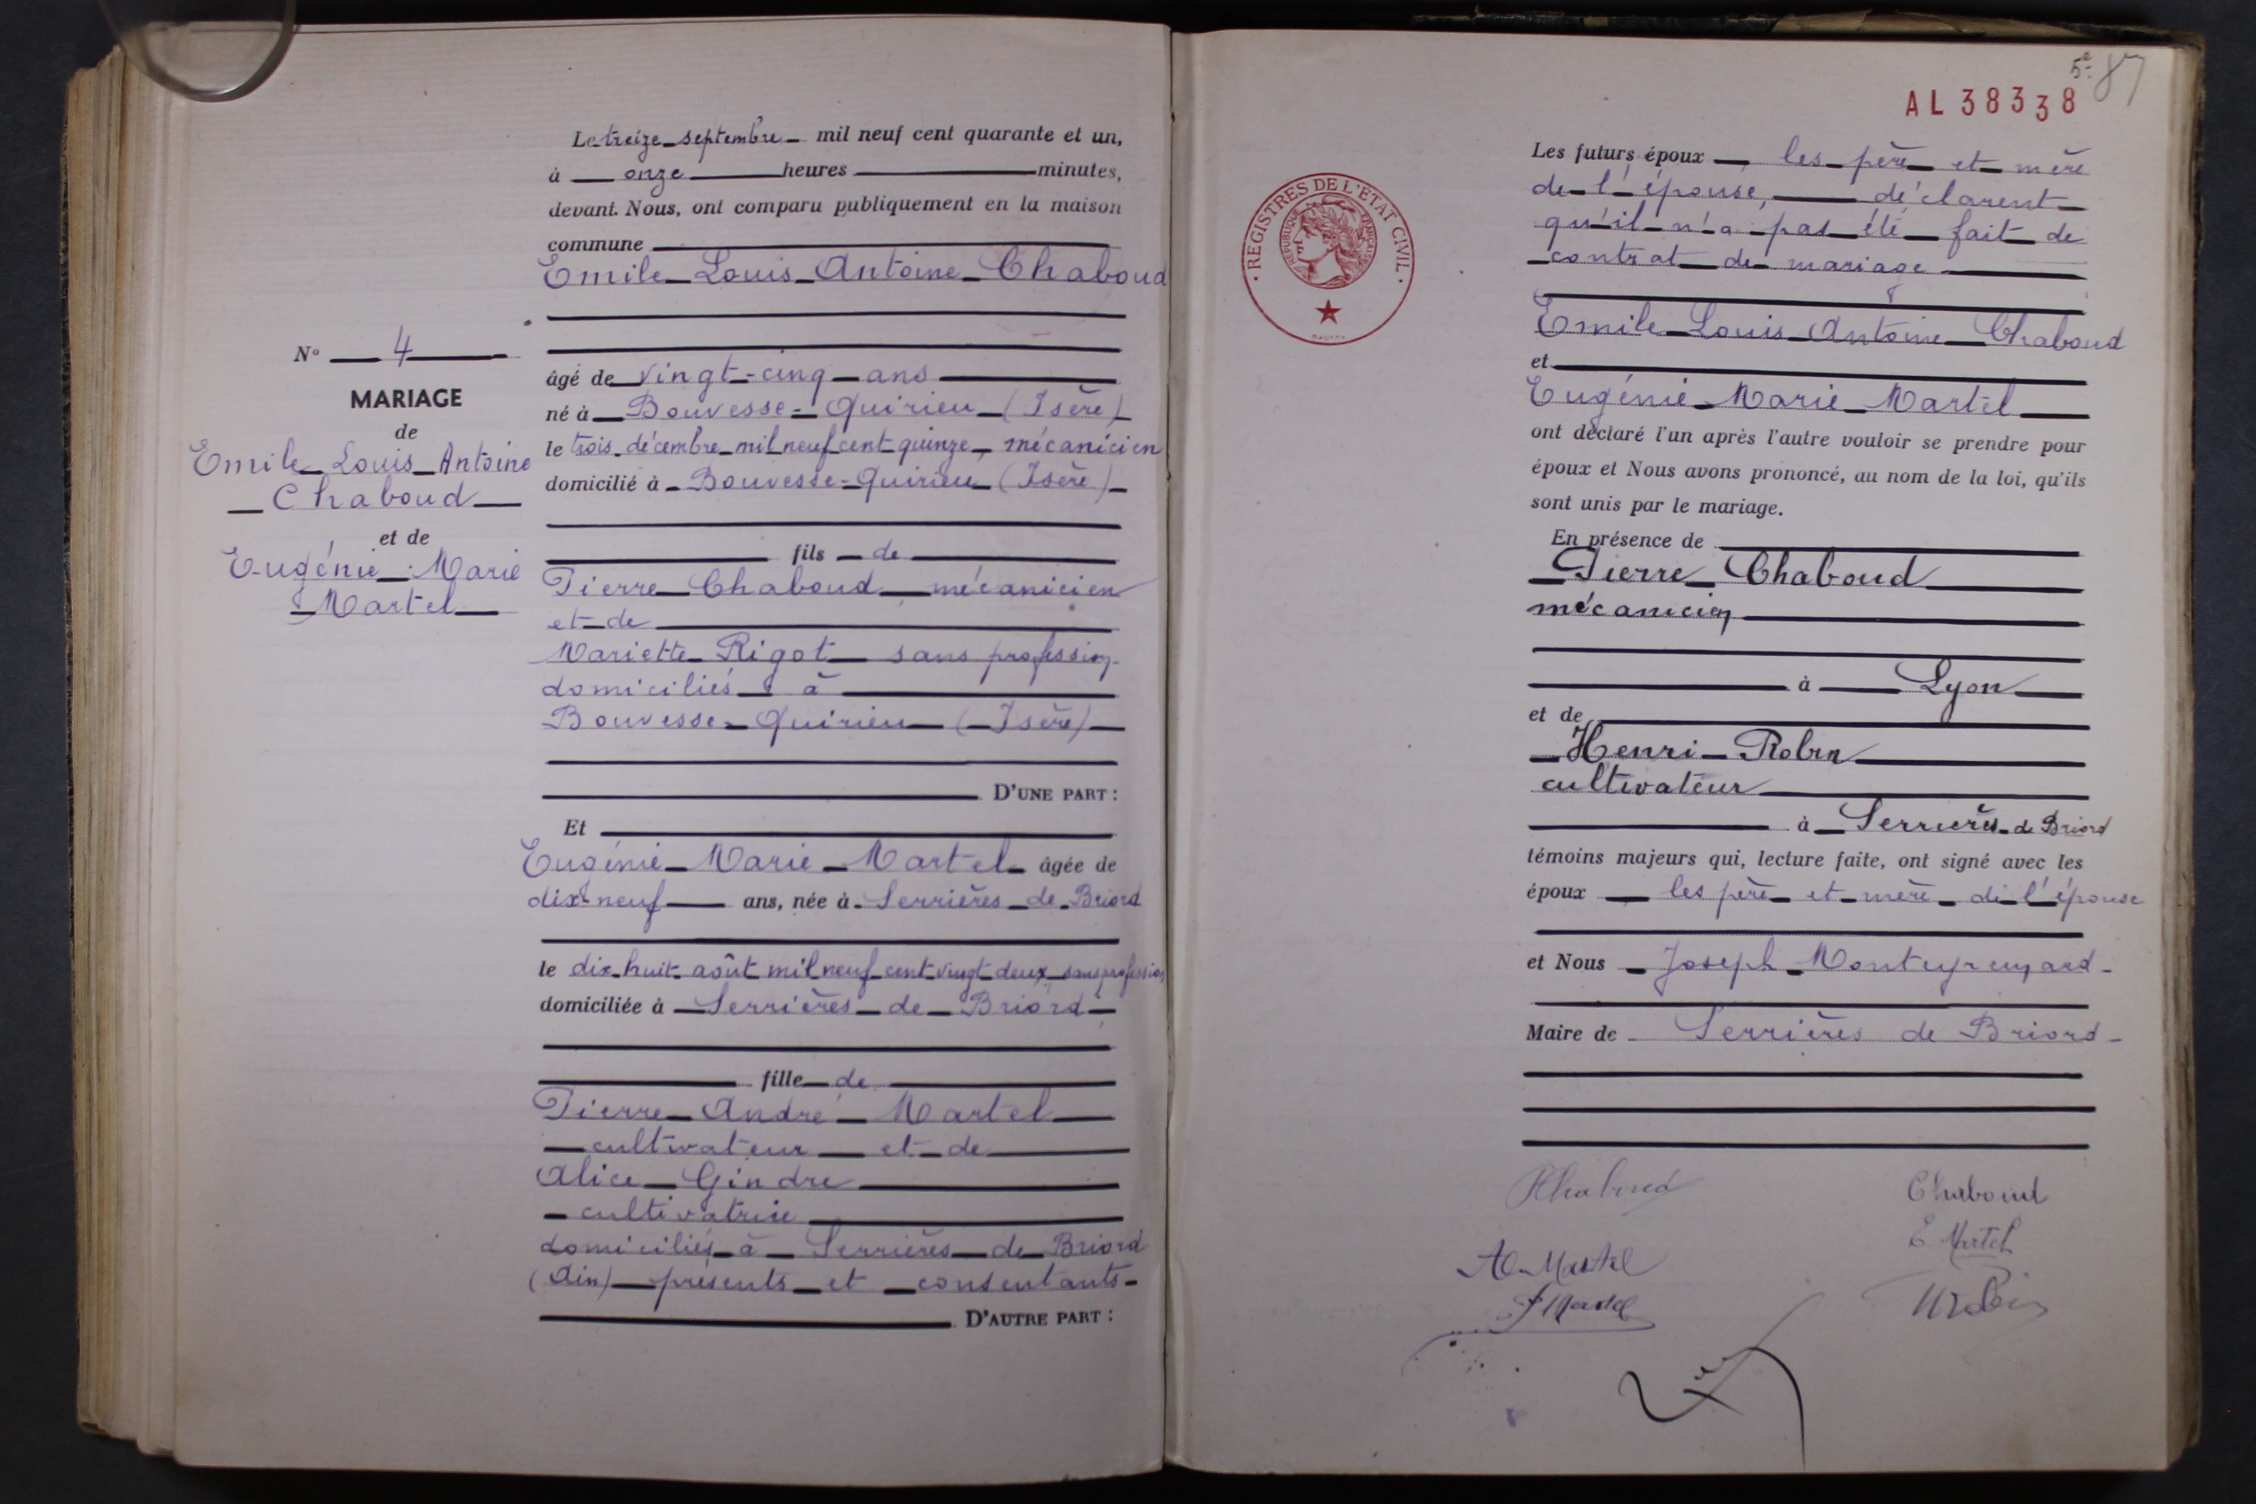 Le treize septembre mil neuf cent quarante et un,
à onze heures minutes,
devant Nous, ont comparu publiquement en la maison
commune
Emile Louis Antoine Chaboud
âgé de vingt-cinq ans
né à Bouvesse-Quirieu (Isère)
le trois décembre mil neuf cent quinze, mécanicien
domicilié à Bouvesse-Quirieu (Isère)
fils de
Pierre Chaboud mécanicien
et de
Mariette Rigot sans profession
domiciliés à
Bouvesse-Quirieu (Isère)
D'UNE PART :
Et
Eugénie Marie Martel âgée de
dix-neuf ans, née à Serrières de Briord
le dix-huit août mil neuf cent vingt deux sans profession
domiciliée à Serrières de Briord
fille de
Pierre André Martel
cultivateur et de
Alice Gindre
cultivatrice
domiciliés à Serrières de Briord
(Ain) présents et consentants
D'AUTRE PART :
N° 4
MARIAGE
de
Emile Louis Antoine
Chaboud
et de
Eugénie Marie
Martel
5e 87
AL 38338
REGISTRES DE L'ETAT CIVIL
REPUBLIQUE FRANÇAISE
Les futurs époux les père et mère
de l'épouse, déclarent
qu'il n'a pas été fait de
contrat de mariage
Emile Louis Antoine Chaboud
et
Eugénie Marie Martel
ont déclaré l'un après l'autre vouloir se prendre pour
époux et Nous avons prononcé, au nom de la loi, qu'ils
sont unis par le mariage.
En présence de
Pierre Chaboud
mécanicien
à Lyon
et de
Henri Robin
cultivateur
à Serrières de Briord
témoins majeurs qui, lecture faite, ont signé avec les
époux les père et mère de l'épouse
et Nous Joseph
Maire de Serrières de Briord
Chaboud
E Martel
A Martel
Martel